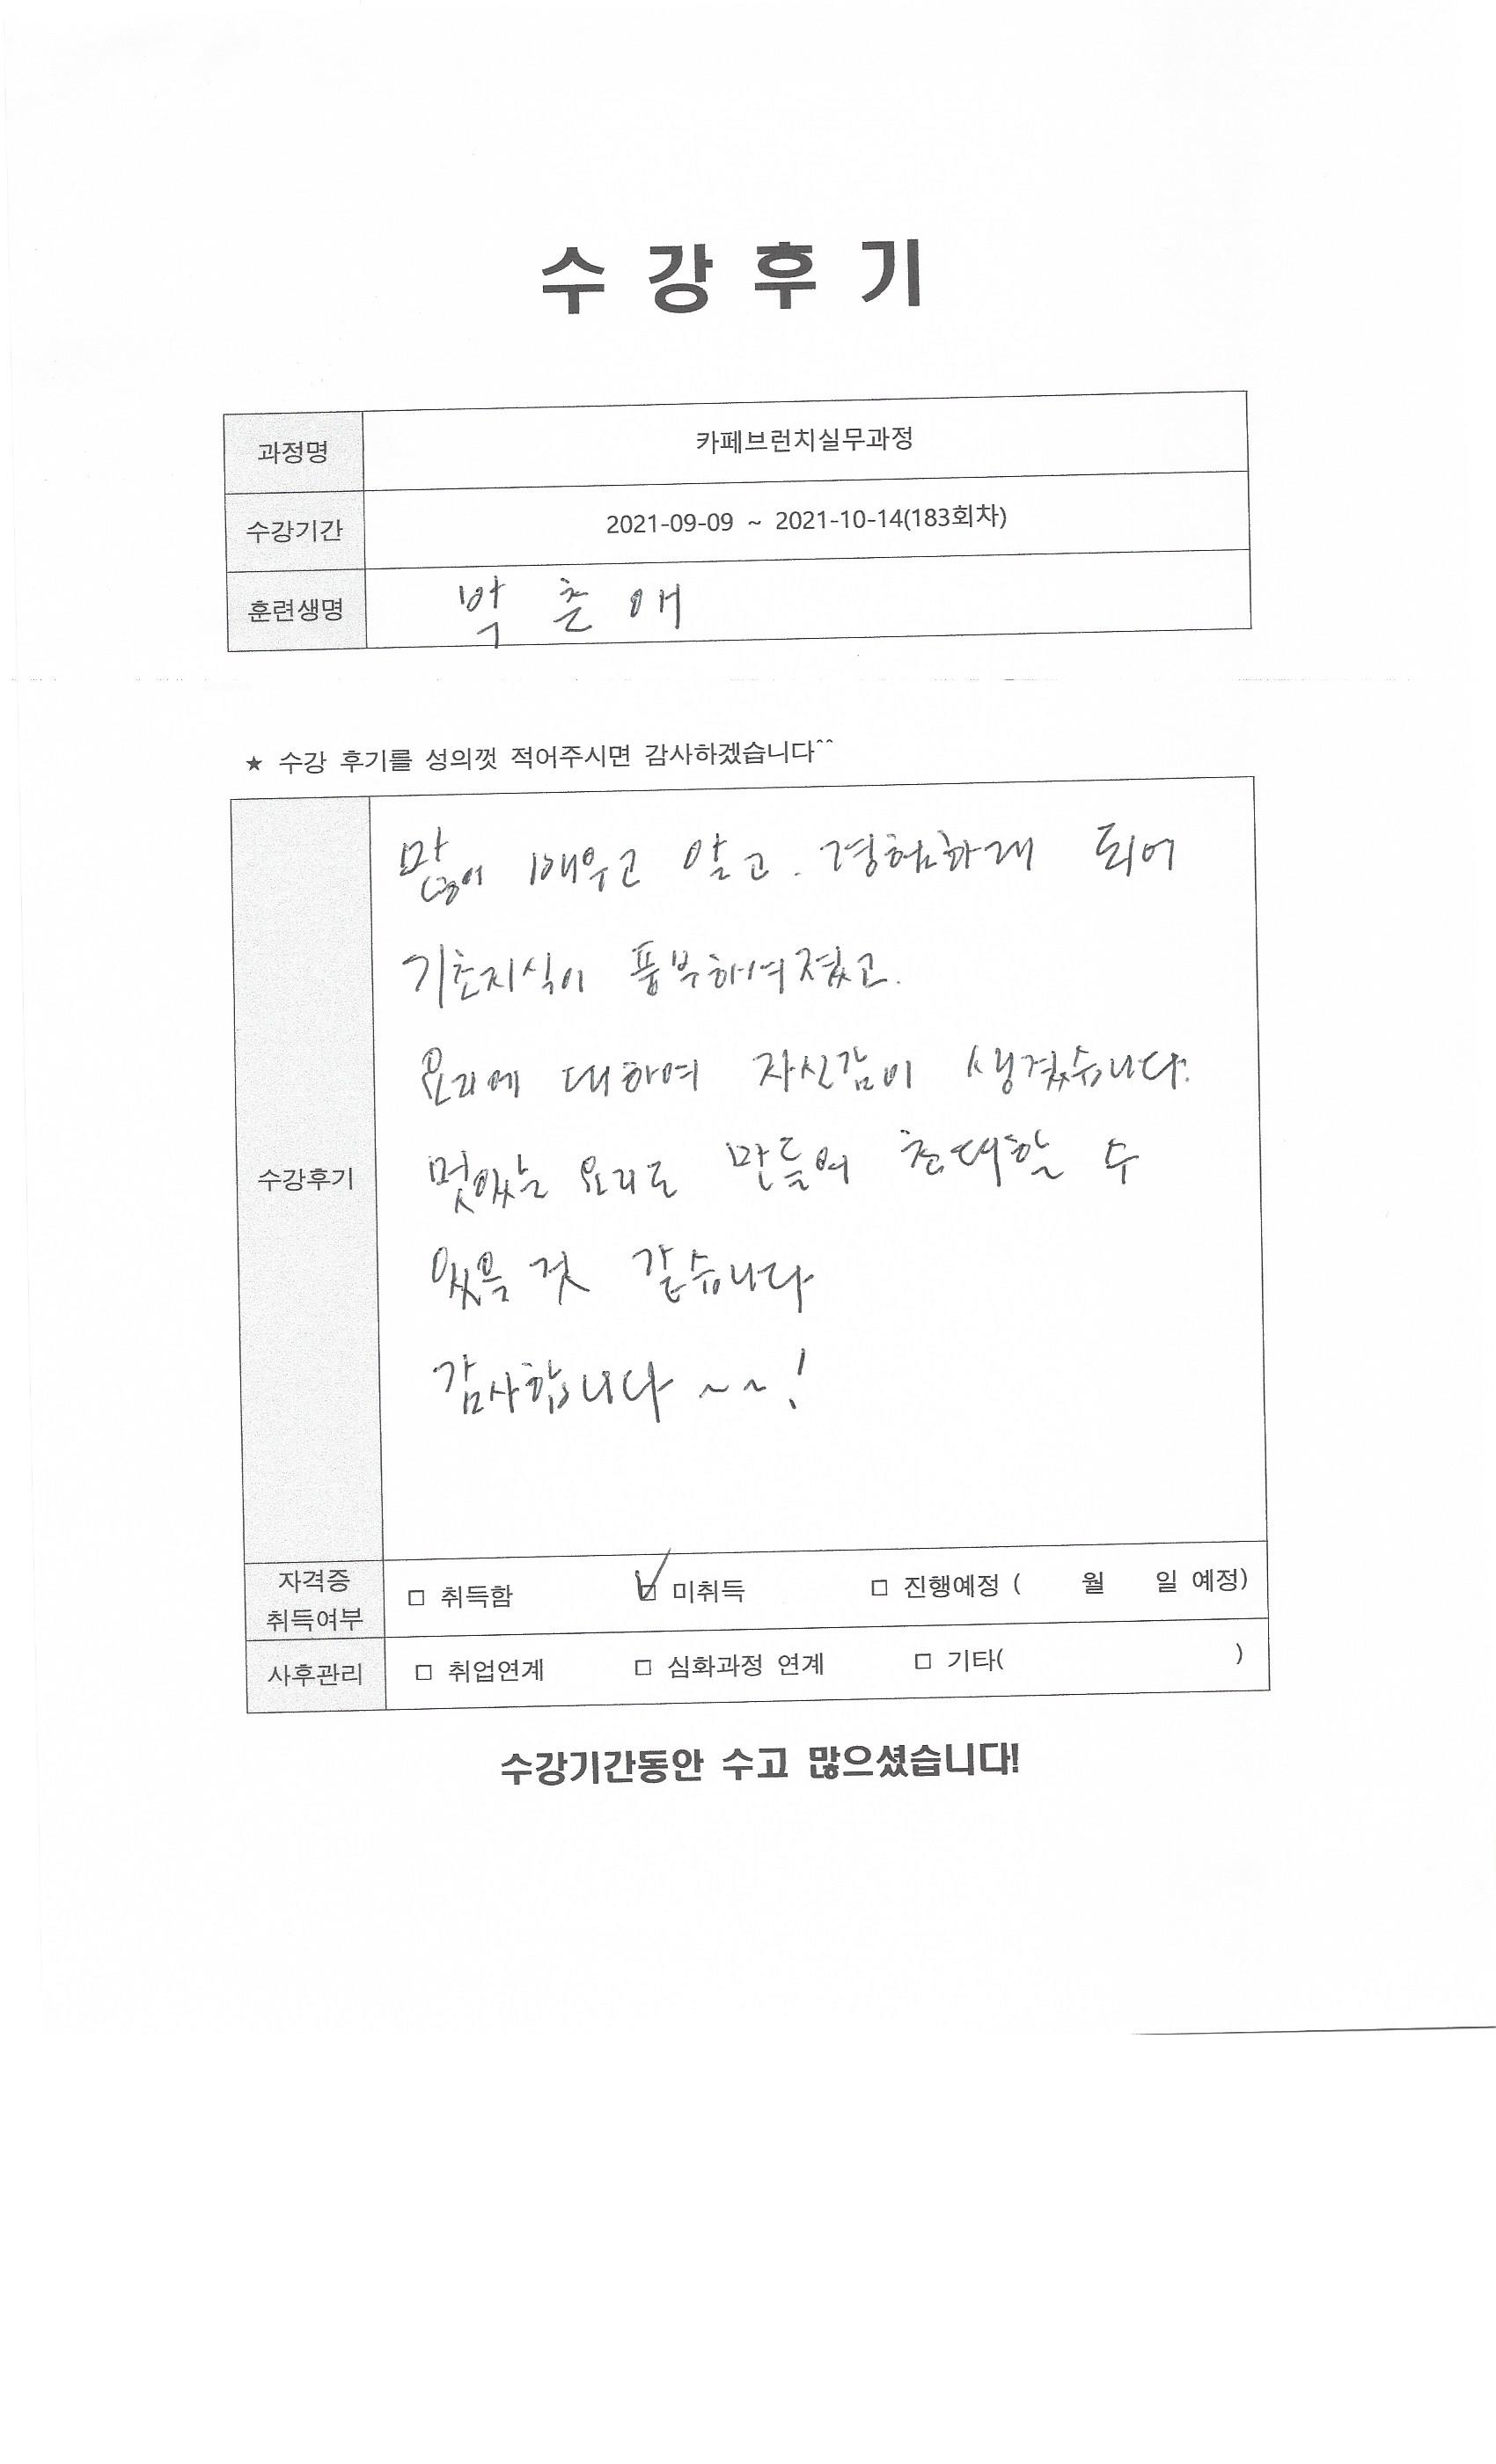 수 강 후 기
과정명 카페브런치실무과정
수강기간 2021-09-09 ~ 2021-10-14(183회차)
훈련생명 박 춘 애
★ 수강 후기를 성의껏 적어주시면 감사하겠습니다^^
많이 배우고 알고. 경험하게 되어
기초지식이 풍부하여졌고.
요리에 대하여 자신감이 생겼습니다.
수강후기
멋있는 요리도 만들어 초대할 수
있을 것 같습니다
감사합니다 ~~!
자격증
취득여부
□ 취득함 ☑ 미취득 □ 진행예정 ( 월 일 예정)
사후관리 □ 취업연계 □ 심화과정 연계 □ 기타( )
수강기간동안 수고 많으셨습니다!